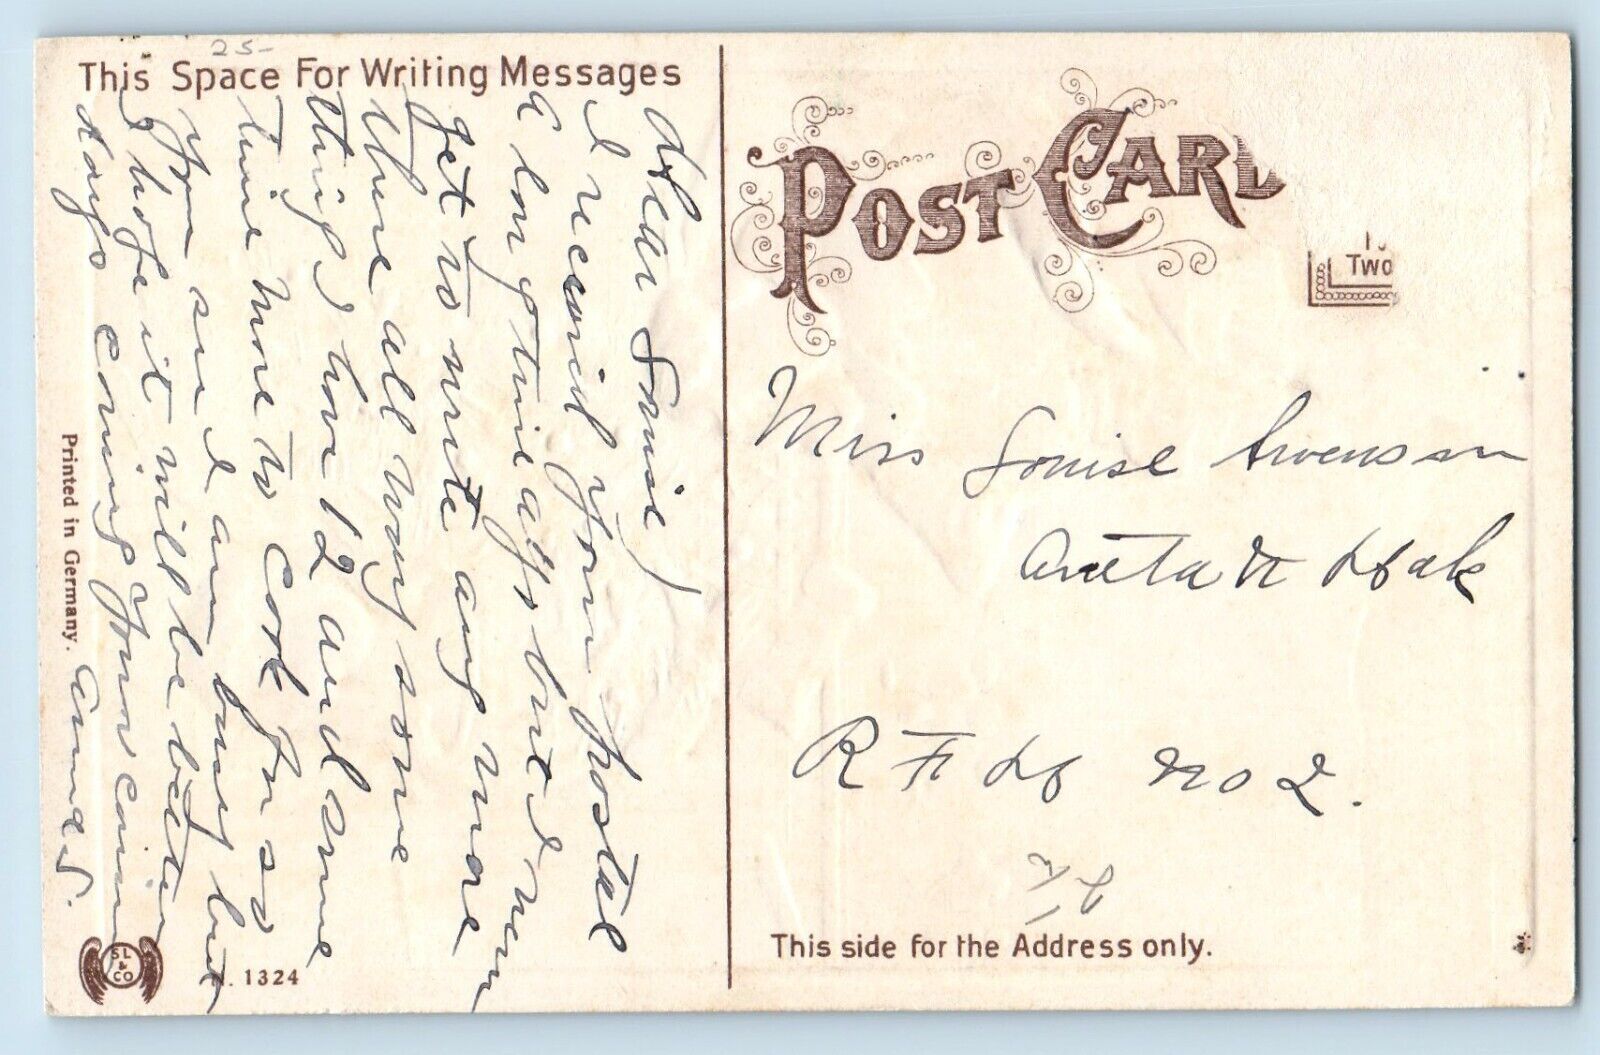 25-
This Space For Writing Messages
Dear Louise)
I received your postal
a long time ago but I never
get to write any more
there all way some
thing I have 12 and some
time more to cook for so
you see I am busy but
I hope it will be better
days coming your cousin
Anna S.
Printed in Germany.
SL & CO
N. 1324
POST CARD
Two
Miss Louise Swenson
Aneta N Dak
R F D No 2.
N D
This side for the Address only.